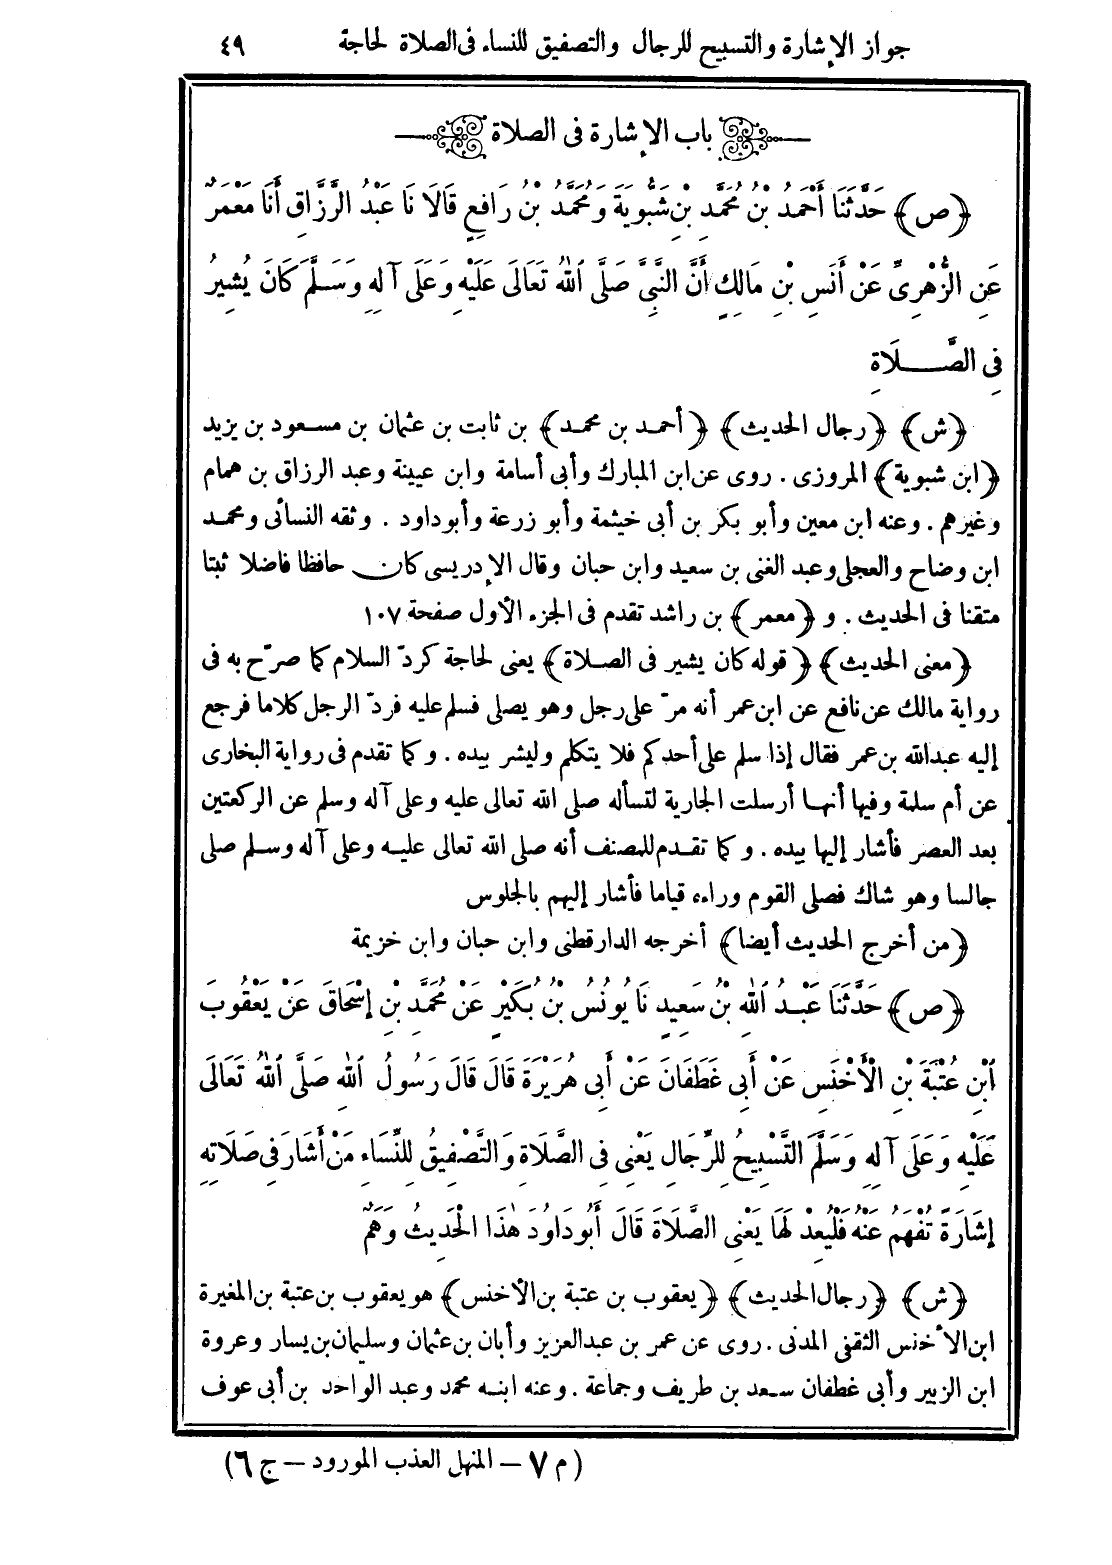 جواز الإشارة والتسبيح للرجال والتصفيق للنساء فى الصلاة لحاجة ٤٩
باب الإشارة فى الصلاة
﴿ص﴾ حَدَّثَنَا أَحْمَدُ بْنُ مُحَمَّدِ بْنِ شَبُّويَةَ وَمُحَمَّدُ بْنُ رَافِعٍ قَالَا نَا عَبْدُ الرَّزَّاقِ أَنَا مَعْمَرٌ
عَنِ الزُّهْرِىِّ عَنْ أَنَسِ بْنِ مَالِكٍ أَنَّ النَّبِىَّ صَلَّى اللهُ تَعَالَى عَلَيْهِ وَعَلَى آلِهِ وَسَلَّمَ كَانَ يُشِيرُ
فِى الصَّلَاةِ
﴿ش﴾ ﴿رجال الحديث﴾ ﴿أحمد بن محمد﴾ بن ثابت بن عثمان بن مسعود بن يزيد
﴿ابن شبوية﴾ المروزى. روى عن ابن المبارك وأبى أسامة وابن عيينة وعبد الرزاق بن همام
وغيرهم. وعنه ابن معين وأبو بكر بن أبى خيثمة وأبو زرعة وأبوداود. وثقه النسائى ومحمد
ابن وضاح والعجلى وعبد الغنى بن سعيد وابن حبان وقال الإدريسى كان حافظا فاضلا ثبتا
متقنا فى الحديث. و﴿معمر﴾ بن راشد تقدم فى الجزء الأول صفحة ١٠٧
﴿معنى الحديث﴾ ﴿قوله كان يشير فى الصلاة﴾ يعنى لحاجة كردّ السلام كما صرّح به فى
رواية مالك عن نافع عن ابن عمر أنه مرّ على رجل وهو يصلى فسلم عليه فردّ الرجل كلاما فرجع
إليه عبدالله بن عمر فقال إذا سلم على أحدكم فلا يتكلم وليشر بيده. وكما تقدم فى رواية البخارى
عن أم سلمة وفيها أنها أرسلت الجارية لتسأله صلى الله تعالى عليه وعلى آله وسلم عن الركعتين
بعد العصر فأشار إليها بيده. وكما تقدم للمصنف أنه صلى الله تعالى عليه وعلى آله وسلم صلى
جالسا وهو شاك فصلى القوم وراءه قياما فأشار إليهم بالجلوس
﴿من أخرج الحديث أيضا﴾ أخرجه الدارقطنى وابن حبان وابن خزيمة
﴿ص﴾ حَدَّثَنَا عَبْدُ اللهِ بْنُ سَعِيدٍ نَا يُونُسُ بْنُ بُكَيْرٍ عَنْ مُحَمَّدِ بْنِ إِسْحَاقَ عَنْ يَعْقُوبَ
ابْنِ عُتْبَةَ بْنِ الْأَخْنَسِ عَنْ أَبِى غَطَفَانَ عَنْ أَبِى هُرَيْرَةَ قَالَ قَالَ رَسُولُ اللهِ صَلَّى اللهُ تَعَالَى
عَلَيْهِ وَعَلَى آلِهِ وَسَلَّمَ التَّسْبِيحُ لِلرِّجَالِ يَعْنِى فِى الصَّلَاةِ وَالتَّصْفِيقُ لِلنِّسَاءِ مَنْ أَشَارَ فِى صَلَاتِهِ
إِشَارَةً تُفْهَمُ عَنْهُ فَلْيُعِدْ لَهَا يَعْنِى الصَّلَاةَ قَالَ أَبُو دَاوُدَ هٰذَا الْحَدِيثُ وَهَمٌ
﴿ش﴾ ﴿رجال الحديث﴾ ﴿يعقوب بن عتبة بن الأخنس﴾ هو يعقوب بن عتبة بن المغيرة
ابن الأخنس الثقفى المدنى. روى عن عمر بن عبدالعزيز وأبان بن عثمان وسليمان بن يسار وعروة
ابن الزبير وأبى غطفان سعد بن طريف وجماعة. وعنه ابنه محمد وعبد الواحد بن أبى عوف
(م ٧ – المنهل العذب المورود – ج ٦)